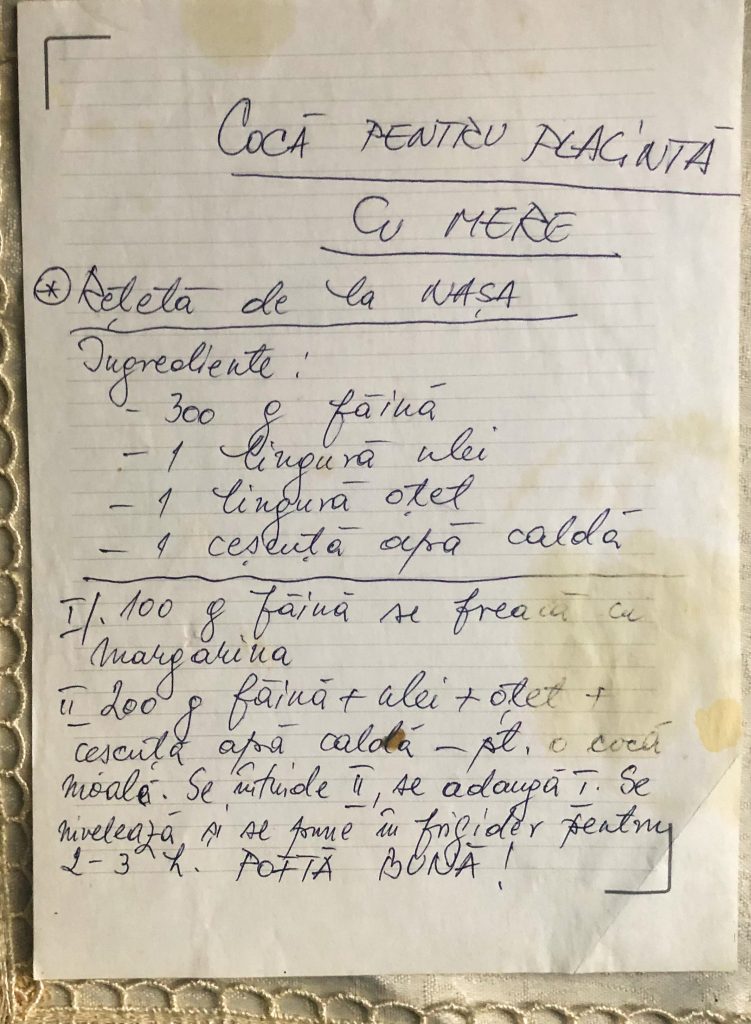 COCĂ PENTRU PLACINTĂ
CU MERE
* Rețetă de la NAȘA
Ingrediente :
- 300 g făină
- 1 lingură ulei
- 1 lingură oțet
- 1 ceșcuță apă caldă
I/. 100 g făină se freacă cu
margarina
II 200 g făină + ulei + oțet +
cescuță apă caldă - pt. o cocă
moale. Se întinde II, se adaugă I. Se
nivelează și se pune în frigider pentru
2-3 h. POFTĂ BUNĂ !